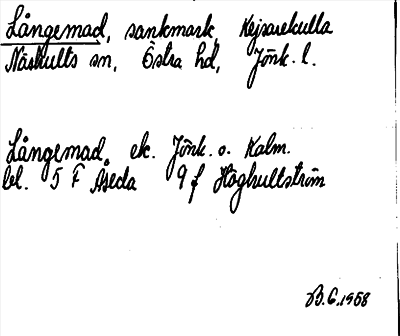 Långemad, sankmark, Kejsarekulla
Näshults sn, Östra hd, Jönk. l.
Långemad. ek. Jönk. o. Kalm.
bl. 5 F Åseda 9 f Höghultström
B.G. 1958